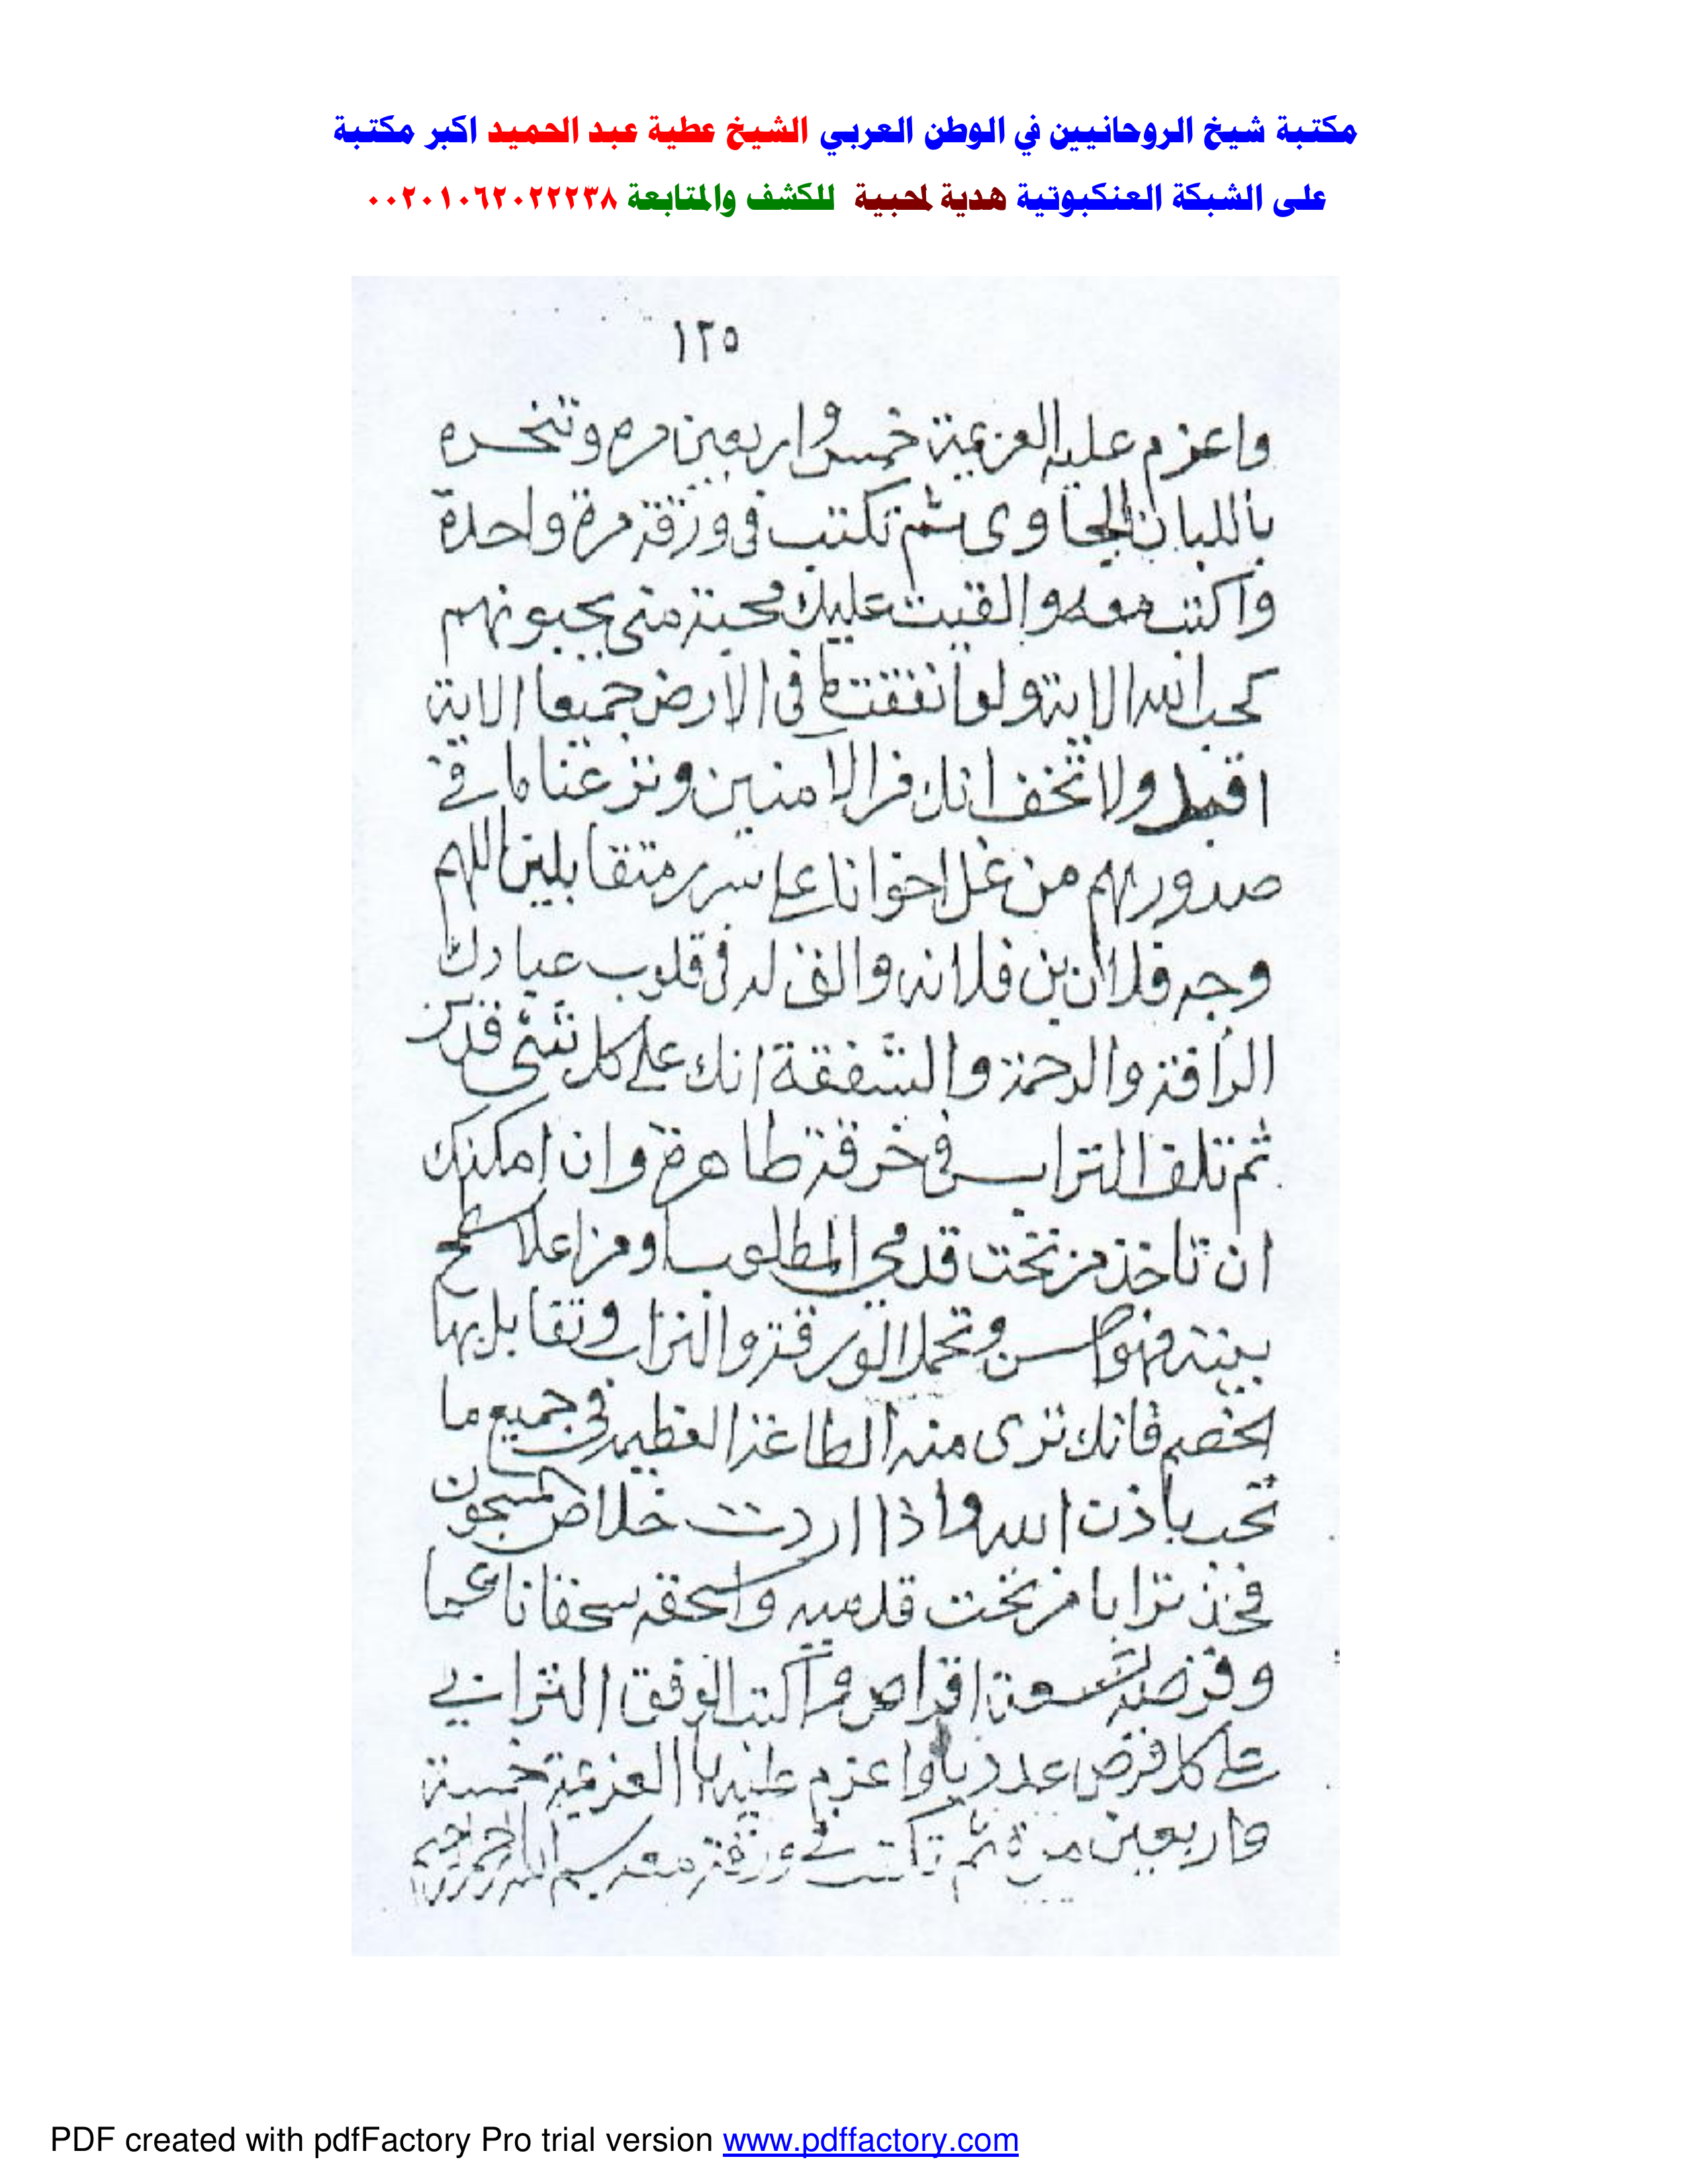 مكتبة شيخ الروحانيين في الوطن العربي الشيخ عطية عبد الحميد اكبر مكتبة
على الشبكة العنكبوتية هدية لمحبية للكشف والمتابعة ٠٠٢٠١٠٦٢٠٢٢٢٣٨
١٢٥
واعزم عليه العزيمة خمس واربعين مره وتنخره
باللبان الجاوى ثم تكتب فى ورقة مرة واحدة
واكتب معه والقيت عليك محبة منى يحبونهم
كحب الله الاية ولو انفقت ما فى الارض جميعا الاية
اقبل ولا تخف انك من الامنين ونزعنا ما فى
صدورهم من غل اخوانا على سرر متقابلين اللهم
وجه فلان بن فلانه والق له فى قلوب عبادك
الرأفة والرحمة والشفقة انك على كل شئ قدير
ثم تلف التراب فى خرقة طاهرة وان امكنك
ان تاخذ من تحت قدمى المطلوب او من اعلا سطح
بيته فهو احسن وتحمل الورقة والتراب وتقابل بها
الخصم فانك ترى منه الطاعة العظيمه فى جميع ما
تحب باذن الله واذا اردت خلاص المسجون
فخذ ترابا من تحت قدميه واسحقه سحقا ناعما
وقرصه تسعة اقراص واكتب الوفق الترابى
على كل قرص عدديا واعزم عليه بالعزيمة خمسة
واربعين مرة ثم تكتب فى ورقة معه بسم الله الرحمن الرحيم
PDF created with pdfFactory Pro trial version www.pdffactory.com